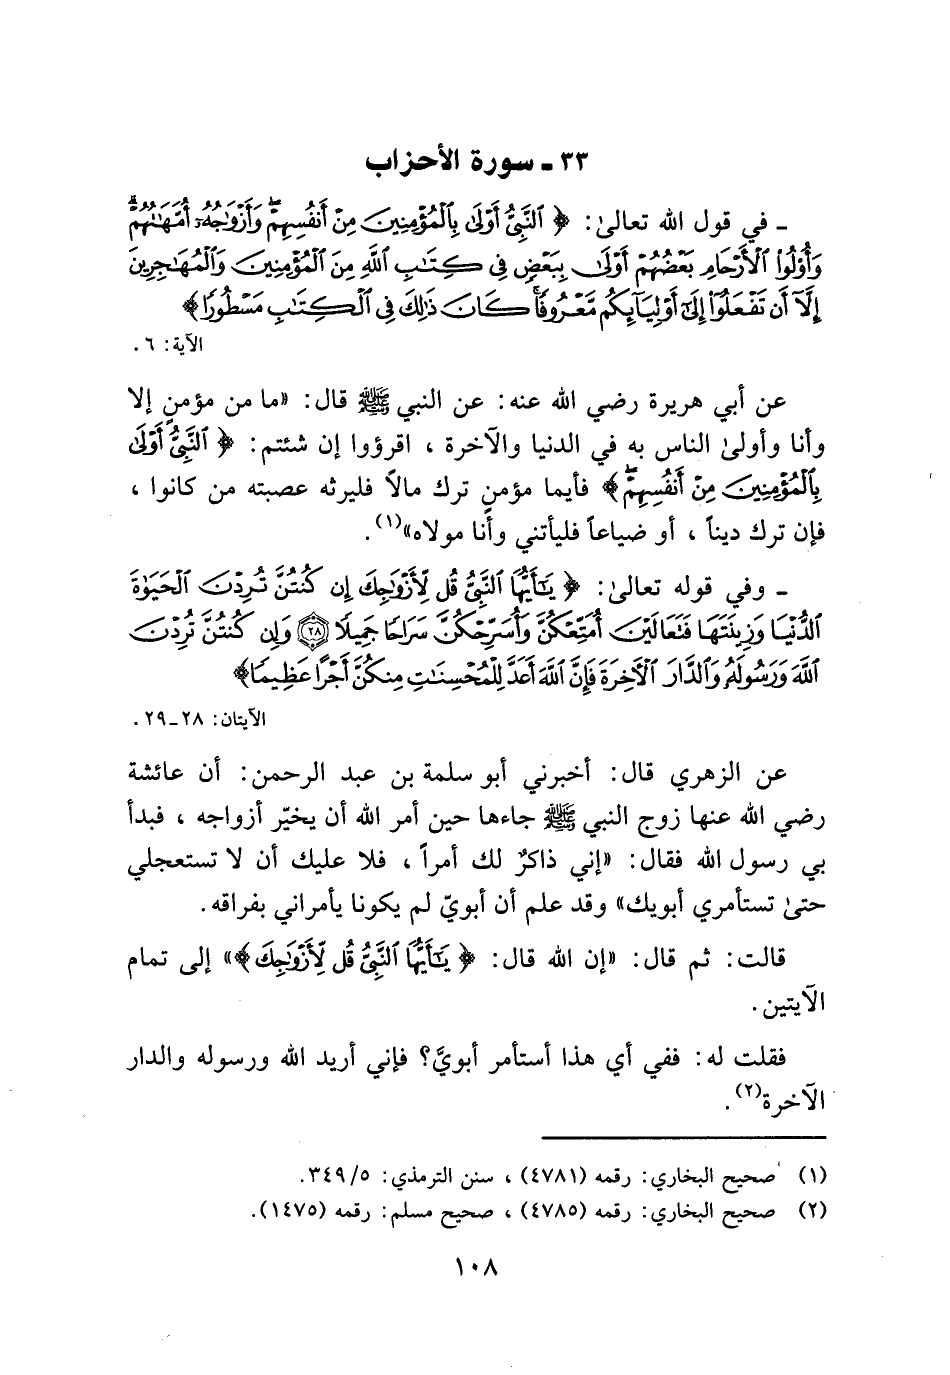 ٣٣ ـ سورة الأحزاب
ـ في قول الله تعالىٰ: ﴿ ٱلنَّبِيُّ أَوْلَىٰ بِٱلْمُؤْمِنِينَ مِنْ أَنفُسِهِمْ ۖ وَأَزْوَٰجُهُۥٓ أُمَّهَـٰتُهُمْ ۗ
وَأُو۟لُوا۟ ٱلْأَرْحَامِ بَعْضُهُمْ أَوْلَىٰ بِبَعْضٍ فِى كِتَـٰبِ ٱللَّهِ مِنَ ٱلْمُؤْمِنِينَ وَٱلْمُهَـٰجِرِينَ
إِلَّآ أَن تَفْعَلُوٓا۟ إِلَىٰٓ أَوْلِيَآئِكُم مَّعْرُوفًا ۚ كَانَ ذَٰلِكَ فِى ٱلْكِتَـٰبِ مَسْطُورًا ﴾
الآية: ٦ .
عن أبي هريرة رضي الله عنه: عن النبي ﷺ قال: «ما من مؤمنٍ إلا
وأنا وأولىٰ الناس به في الدنيا والآخرة ، اقرؤوا إن شئتم: ﴿ ٱلنَّبِيُّ أَوْلَىٰ
بِٱلْمُؤْمِنِينَ مِنْ أَنفُسِهِمْ ۖ ﴾ فأيما مؤمنٍ ترك مالاً فليرثه عصبته من كانوا ،
فإن ترك ديناً ، أو ضياعاً فليأتني وأنا مولاه»(١).
ـ وفي قوله تعالىٰ: ﴿ يَـٰٓأَيُّهَا ٱلنَّبِيُّ قُل لِّأَزْوَٰجِكَ إِن كُنتُنَّ تُرِدْنَ ٱلْحَيَوٰةَ
ٱلدُّنْيَا وَزِينَتَهَا فَتَعَالَيْنَ أُمَتِّعْكُنَّ وَأُسَرِّحْكُنَّ سَرَاحًا جَمِيلًا ۝٢٨ وَإِن كُنتُنَّ تُرِدْنَ
ٱللَّهَ وَرَسُولَهُۥ وَٱلدَّارَ ٱلْأَخِرَةَ فَإِنَّ ٱللَّهَ أَعَدَّ لِلْمُحْسِنَـٰتِ مِنكُنَّ أَجْرًا عَظِيمًا ﴾
الآيتان: ٢٨ ـ ٢٩ .
عن الزهري قال: أخبرني أبو سلمة بن عبد الرحمن: أن عائشة
رضي الله عنها زوج النبي ﷺ جاءها حين أمر الله أن يخيّر أزواجه ، فبدأ
بي رسول الله فقال: «إني ذاكرٌ لك أمراً ، فلا عليك أن لا تستعجلي
حتىٰ تستأمري أبويك» وقد علم أن أبويّ لم يكونا يأمراني بفراقه.
قالت: ثم قال: «إن الله قال: ﴿ يَـٰٓأَيُّهَا ٱلنَّبِيُّ قُل لِّأَزْوَٰجِكَ ﴾» إلى تمام
الآيتين.
فقلت له: ففي أي هذا أستأمر أبويَّ؟ فإني أريد الله ورسوله والدار
الآخرة(٢).
(١) صحيح البخاري: رقمه (٤٧٨١) ، سنن الترمذي: ٣٤٩/٥.
(٢) صحيح البخاري: رقمه (٤٧٨٥) ، صحيح مسلم: رقمه (١٤٧٥).
١٠٨